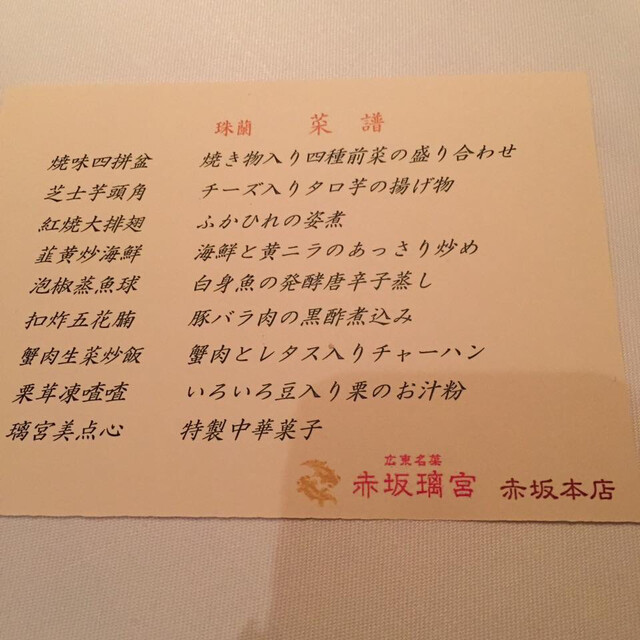 珠蘭 菜譜
焼味四拼盆 焼き物入り四種前菜の盛り合わせ
芝士芋頭角 チーズ入りタロ芋の揚げ物
紅焼大排翅 ふかひれの姿煮
韮黄炒海鮮 海鮮と黄ニラのあっさり炒め
泡椒蒸魚球 白身魚の発酵唐辛子蒸し
扣炸五花腩 豚バラ肉の黒酢煮込み
蟹肉生菜炒飯 蟹肉とレタス入りチャーハン
栗茸凍喳喳 いろいろ豆入り栗のお汁粉
璃宮美点心 特製中華菓子
広東名菜
赤坂璃宮 赤坂本店